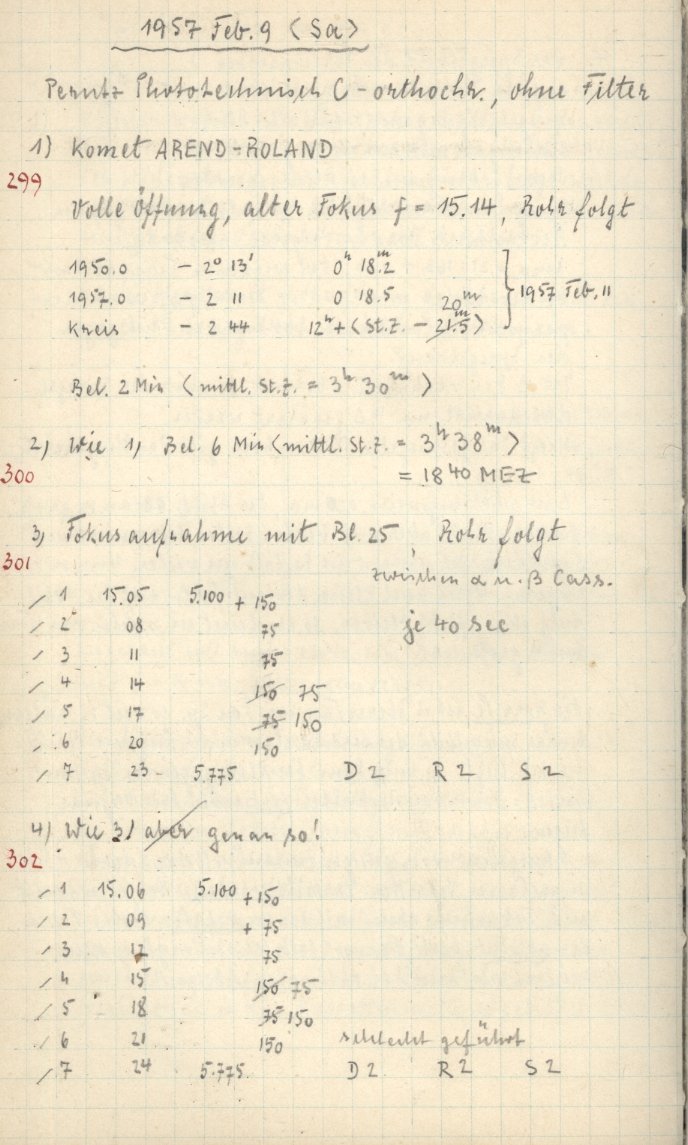 1957 Feb. 9 (Sa)
Perutz Phototechnisch C-orthochr., ohne Filter
1) Komet AREND-ROLAND
299
Volle Öffnung, alter Fokus f = 15.14, Rohr folgt
1950.0 - 2° 13' 0h 18.m2
1957.0 - 2 11 0 18.5 } 1957 Feb. 11
20m
Kreis - 2 44 12h + (St.Z. - 21.m5)
Bel. 2 Min (mittl. St.Z. = 3h 30m)
2) Wie 1) Bel. 6 Min (mittl. St.Z. = 3h 38m)
300
= 18 40 MEZ
3) Fokusaufnahme mit Bl. 25, Rohr folgt
301
zwischen α u. β Cass.
/ 1 15.05 5.100 + 150
/ 2 08 75 je 40 sec
/ 3 11 75
/ 4 14 150 75
/ 5 17 75 150
/ 6 20 150
/ 7 23 - 5.775 D 2 R 2 S 2
4) Wie 3) aber genau so!
302
/ 1 15.06 5.100 + 150
/ 2 09 + 75
/ 3 12 75
/ 4 15 150 75
/ 5 18 75 150
/ 6 21 150 schlecht geführt
/ 7 24 5.775 D 2 R 2 S 2